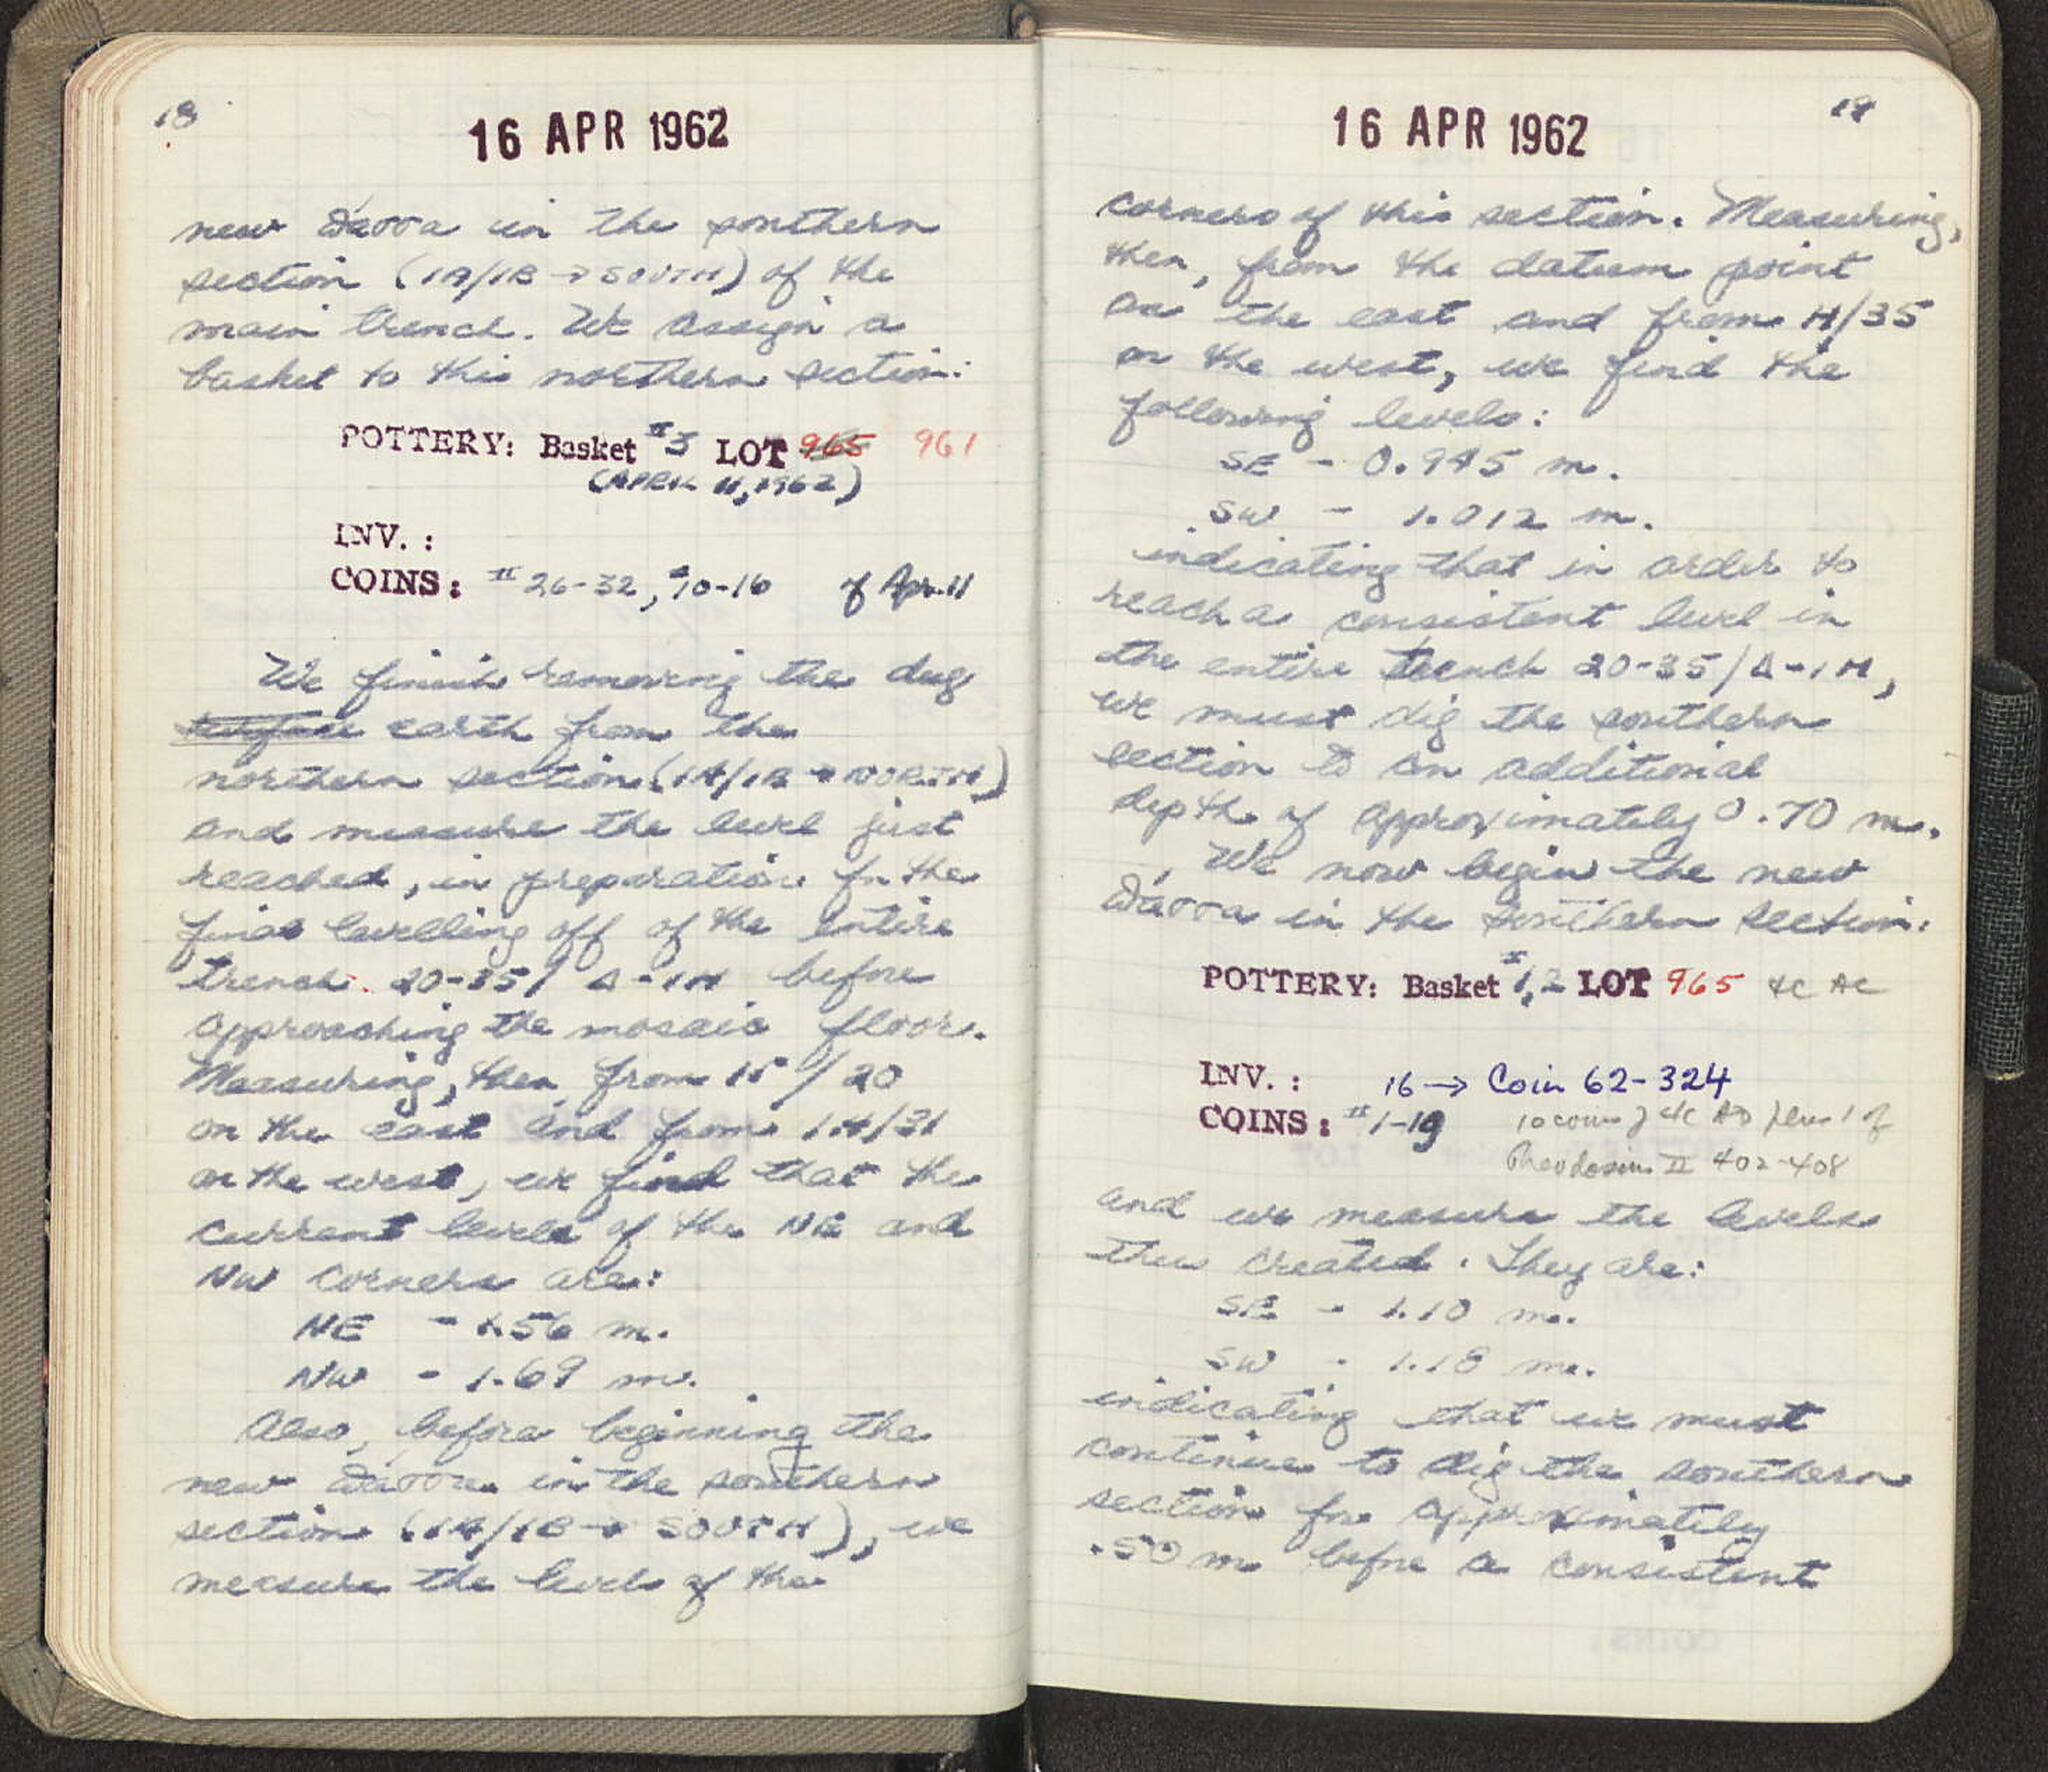 18
16 APR 1962
new πάσσα in the southern
section (1A/1B → SOUTH) of the
main trench. We assign a
basket to this northern section:
POTTERY: Basket #3 LOT 965 961
(APRIL 11, 1962)
INV. :
COINS: # 26-32, #10-16 of Apr. 11
We finish removing the dug
surface earth from the
northern section (1A/1B → NORTH)
and measure the level just
reached, in preparation for the
final levelling off of the entire
trench 20-35/ Δ-1H before
approaching the mosaic floor.
Measuring, then, from / 20
on the east and from 1H/31
on the west, we find that the
current levels of the NE and
NW corners are:
NE - 1.56 m.
NW - 1.69 m.
Also, before beginning the
new πάσσα in the southern
section (1A/1B → SOUTH), we
measure the levels of the
19
16 APR 1962
corners of this section. Measuring,
then, from the datum point
on the east and from H/35
on the west, we find the
following levels:
SE - 0.945 m.
SW - 1.012 m.
indicating that in order to
reach a consistent level in
the entire trench 20-35/Δ-1H,
we must dig the southern
section to an additional
depth of approximately 0.70 m.
We now begin the new
πάσσα in the southern section:
POTTERY: Basket #1,2 LOT 965 4C AC
INV. : 16 → Coin 62-324
COINS: # 1-19 10 coins of 4C AD plus 1 of
Theodosius II 402-408
and we measure the levels
thus created. They are:
SE - 1.10 m.
SW - 1.18 m.
indicating that we must
continue to dig the southern
section for approximately
.50 m before a consistent